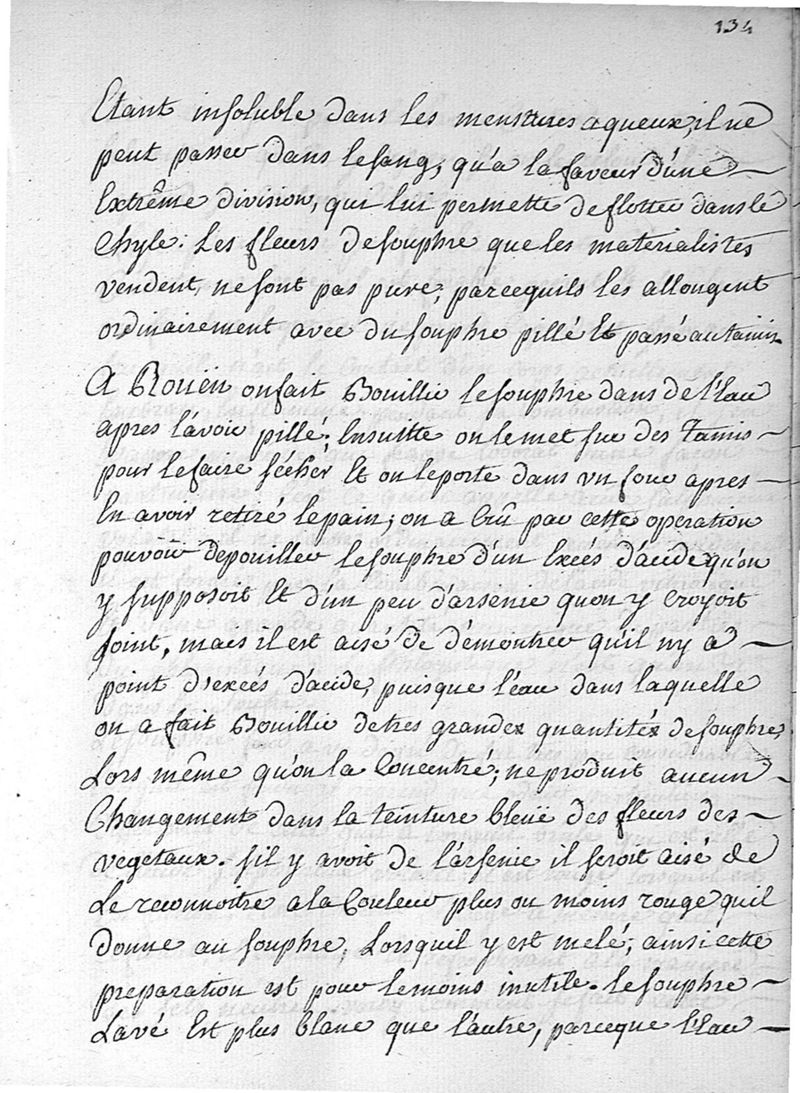 134
Etant insoluble dans les menstrues aqueux, il ne
peut passer dans le sang, qu'a la faveur d'une
Extrême division, qui lui permette de flotter dans le
Chyle: Les fleurs de souphre que les materialistes
vendent, ne sont pas pure; parcequils les allongent
ordinairement avec du souphre pillé Et passé au tamis.
A Roüen on fait Bouillir le souphre dans de l'Eau
apres l'avoir pillé; Ensuitte on le met sur des Tamis
pour le faire sécher Et on le porte dans un four apres
En avoir retiré le pain; on a Crû par cette operation
pouvoir depouiller le souphre d'un Excés d'acide qu'on
y supposoit Et d'un peu d'arsenic quon y croyoit
joint, mais il est aisé de démontrer qu'il ny a
point d'excés d'acide, puisque l'éau dans laquelle
on a fait Bouillir de tres grandes quantités de souphre,
Lors même qu'on la Concentré; ne produit aucun
Changement dans la teinture bleüe des fleurs des
vegetaux. s'il y avoit de l'arsenic il seroit aisé de
Le reconnoitre a la Couleur plus ou moins rouge quil
donne au souphre, Lorsquil y est melé; ainsi cette
preparation est pour le moins inutile. le souphre
Lavé Est plus blanc que l'autre, parceque l'Eau